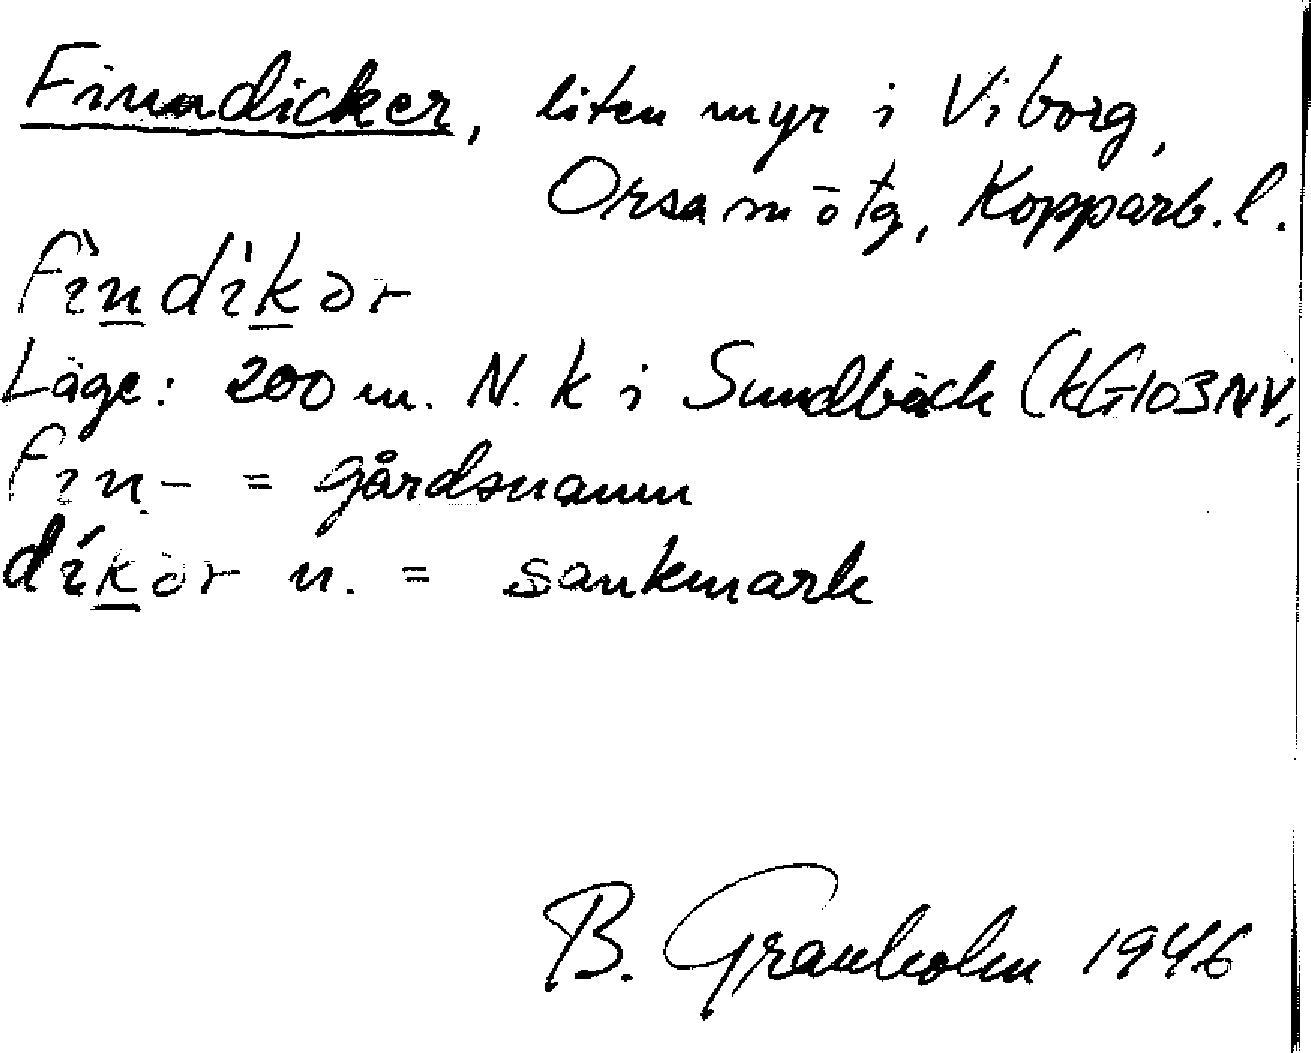 Finndicker, liten myr i Viborg,
Orsa m ö tg, Kopparb. l.
fìndíkər
Läge: 200 m. N. k i Sundbäck (kG103NV,
fin- = gårdsnamn
díkər n. = sankmark
B. Granholm 1946